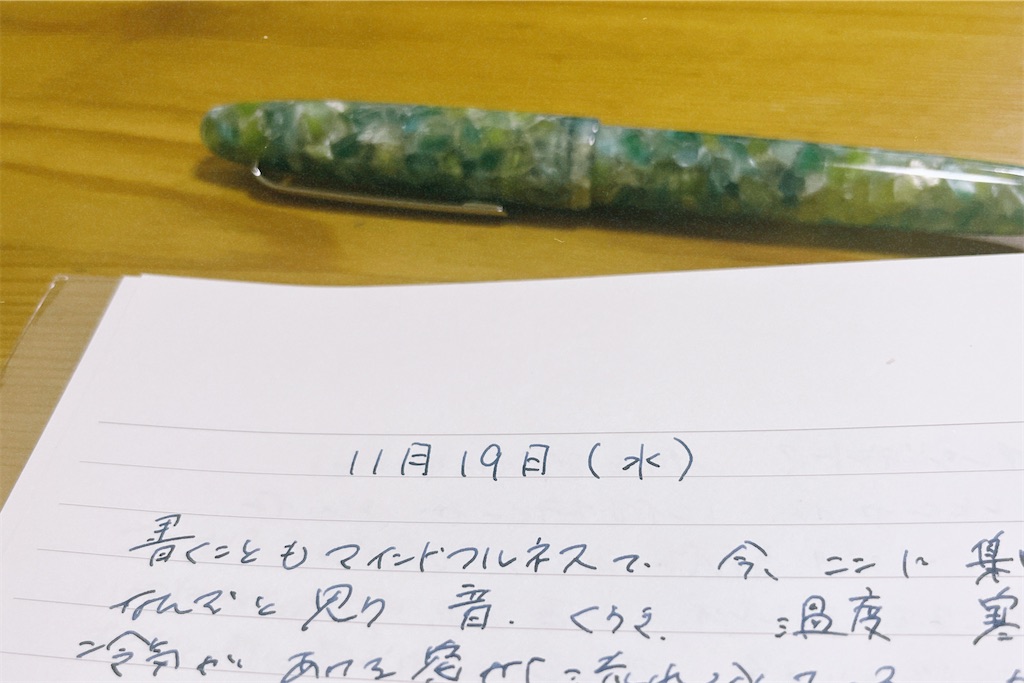 11月19日(水)
書くこともマインドフルネスで、今、ここに集
なんだと思う 音、くうき、温度 寒
冷気が あける窓から流れ